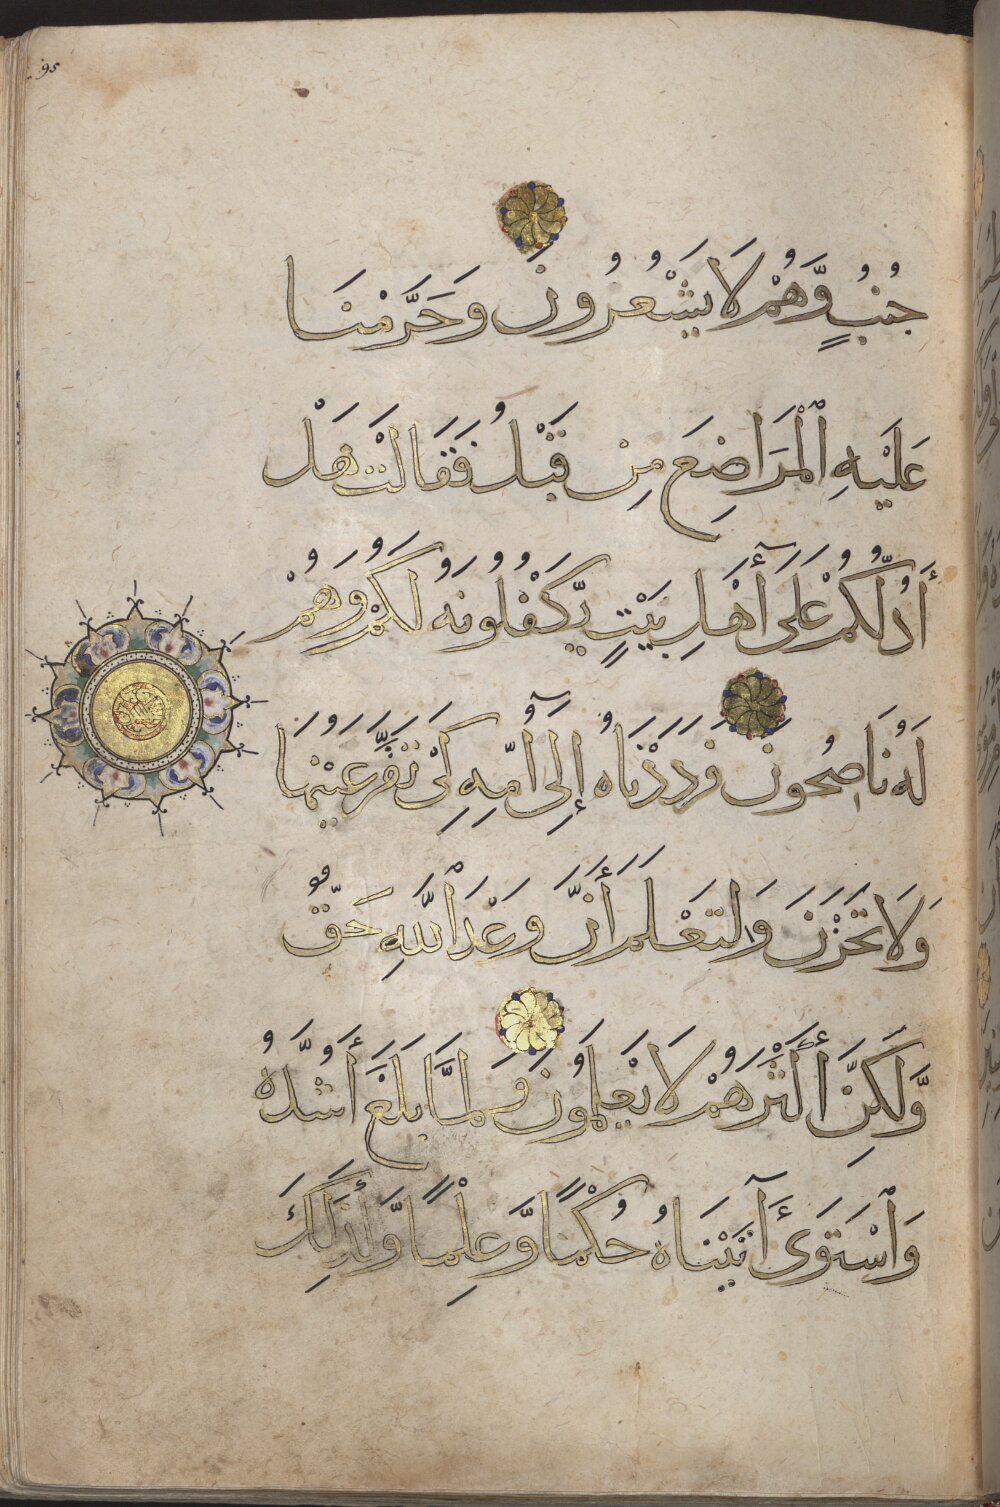 95
جُنُبٍ وَّهُمْ لَا يَشْعُرُونَ وَحَرَّمْنَا
عَلَيْهِ ٱلْمَرَاضِعَ مِن قَبْلُ فَقَالَتْ هَلْ
أَدُلُّكُمْ عَلَىٰٓ أَهْلِ بَيْتٍ يَّكْفُلُونَهُ لَكُمْ وَهُمْ
لَهُ نَاصِحُونَ فَرَدَدْنَاهُ إِلَىٰٓ أُمِّهِ كَىْ تَقَرَّ عَيْنُهَا
وَلَا تَحْزَنَ وَلِتَعْلَمَ أَنَّ وَعْدَ ٱللَّهِ حَقٌّ
وَّلَٰكِنَّ أَكْثَرَهُمْ لَا يَعْلَمُونَ وَلَمَّا بَلَغَ أَشُدَّهُ
وَٱسْتَوَىٰٓ ءَاتَيْنَاهُ حُكْمًا وَّعِلْمًا وَّكَذَٰلِكَ